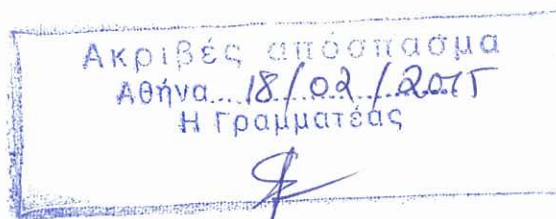 Ακριβές απόσπασμα
Αθήνα... 18/02/2015
Η Γραμματέας